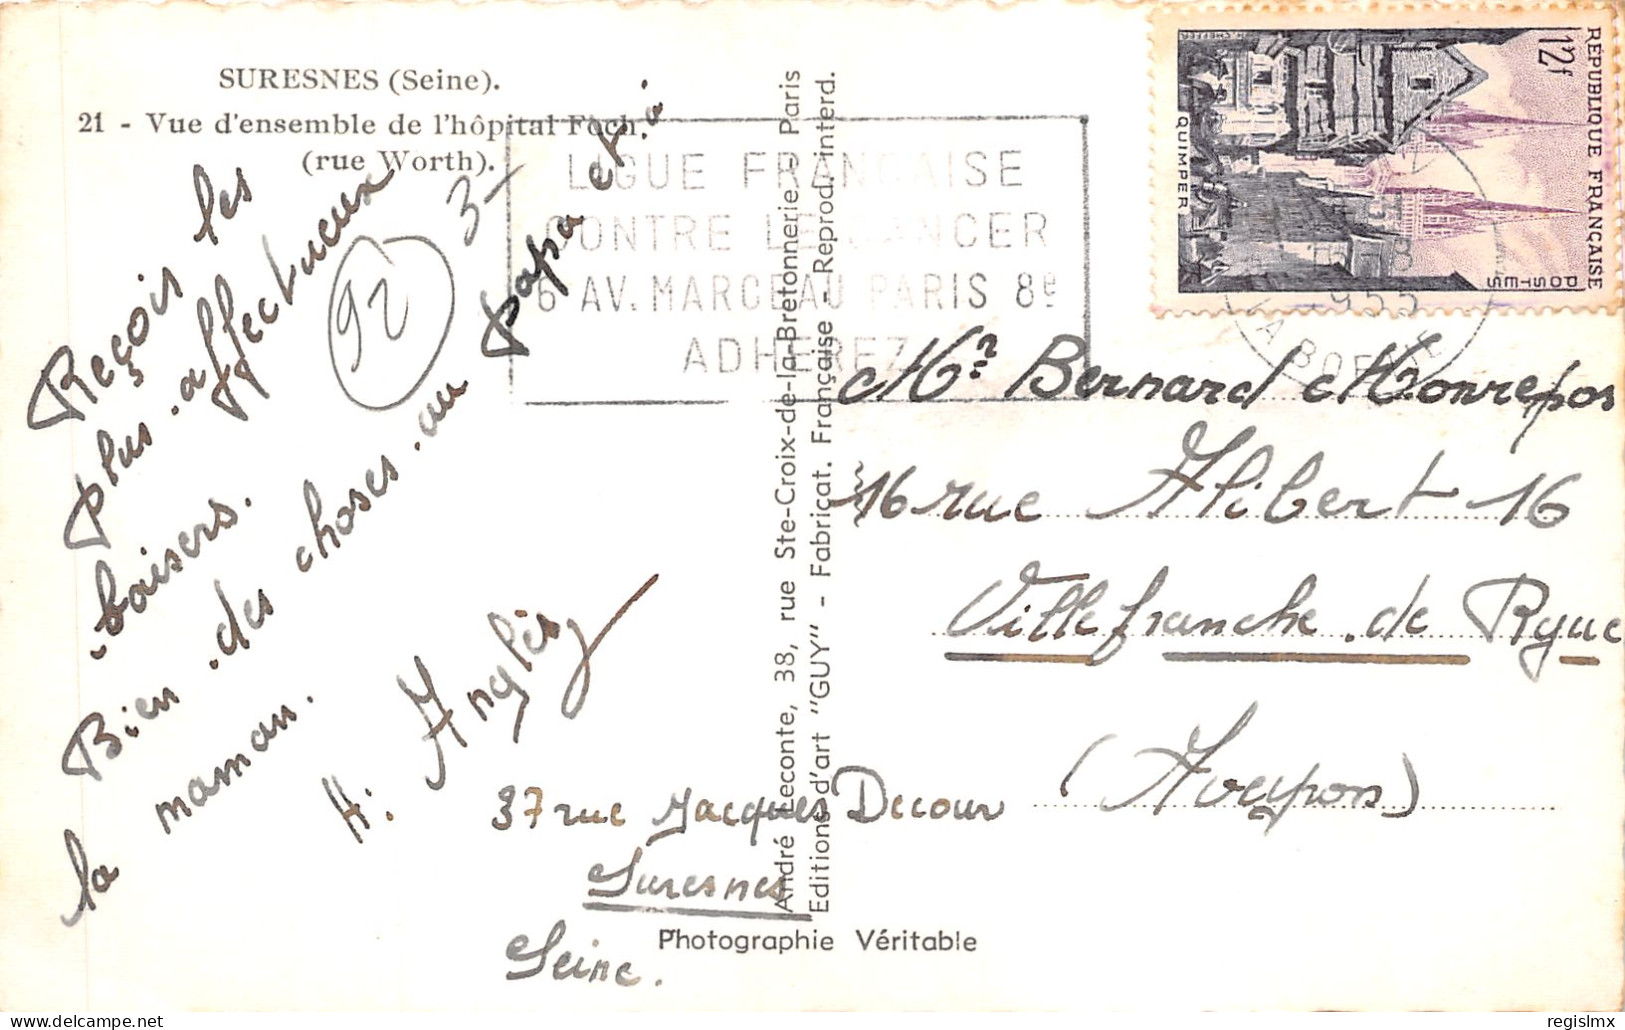 SURESNES (Seine).
21 - Vue d'ensemble de l'hôpital Foch.
(rue Worth).
Reçois les
plus affectueux
baisers.
Bien des choses au papa et à
la maman.
H. Anglès
92
3-
37 rue Jacques Decour
Suresnes
Seine.
LIGUE FRANÇAISE
CONTRE LE CANCER
6 AV. MARCEAU PARIS 8e
ADHEREZ
André Leconte, 38, rue Ste-Croix-de-la-Bretonnerie - Paris
Editions d'art "GUY" - Fabricat. Française - Reprod. interd.
Photographie Véritable
RÉPUBLIQUE FRANÇAISE
12f
POSTES
QUIMPER
1955
LA BOETIE
Mr Bernard Monrepos
16 rue Alibert 16
Villefranche de Rgue
(Aveyron)
www.delcampe.net
regislmx